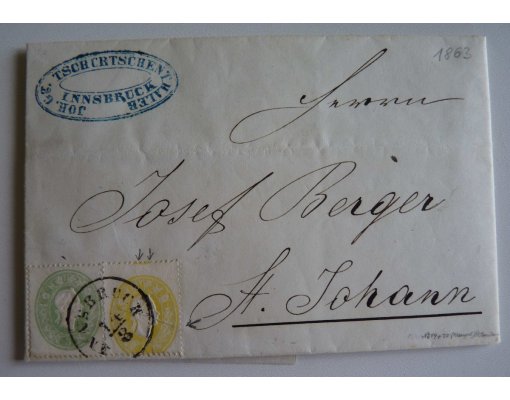 JOH. GG. TSCHURTSCHENTHALER
INNSBRUCK
1863
Herrn
Josef Berger
St. Johann
INNSBRUCK